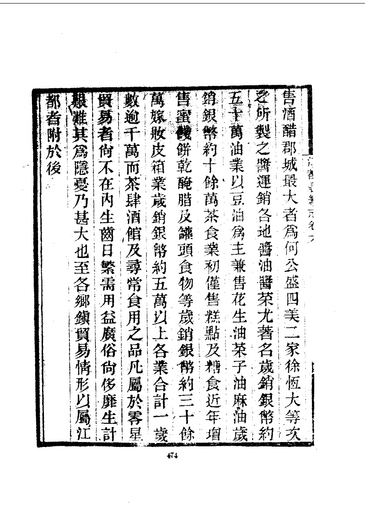 售酒醋郡城最大者爲何公盛四美二家徐恆大等次
之所製之醬運銷各地醬油醬菜尤著名歲銷銀幣約
五十萬油業以豆油爲主兼售花生油菜子油麻油歲
銷銀幣約十餘萬茶食業初僅售糕點及糖食近年增
售蜜餞餅乾醃腊及罐頭食物等歲銷銀幣約三十餘
萬嫁妝皮箱業歲銷銀幣約五萬以上各業合計一歲
數逾千萬而茶肆酒館及尋常食用之品凡屬於零星
貿易者尙不在內生齒日繁需用益廣俗尙侈靡生計
艱難其爲隱憂乃甚大也至各鄉鎭貿易情形以屬江
都者附於後
474